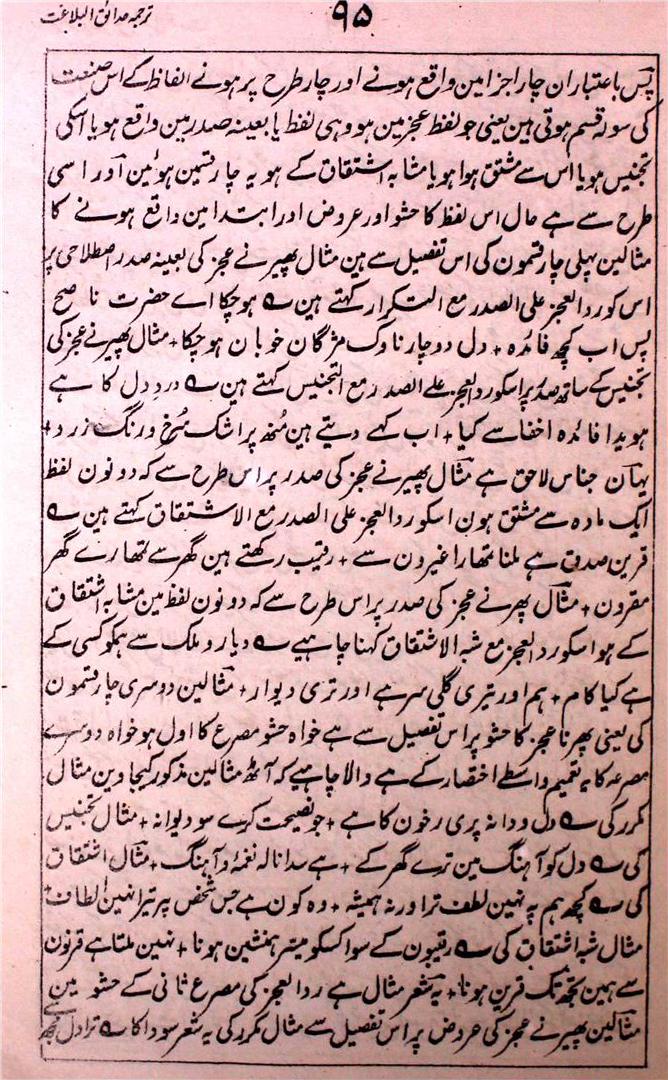 ترجمہ حدائق البلاغت
۹۵
پس باعتبار ان چار اجزا مین واقع ہونے اور چار طرح پر ہونے الفاظ کے اس صنعت
کی سولہ قسم ہوتی ہین یعنی جو لفظ عجز مین ہو وہی لفظ یا بعینہ صدر مین واقع ہو یا اسکی
تجنیس ہو یا اس سے مشتق ہوا ہو یا مشابہ اشتقاق کے ہو یہ چار قسمین ہوئین اور اسی
طرح سے ہے حال اس لفظ کا حشو اور عروض اور ابتدا مین واقع ہونے کا
مثالین پہلی چار قسمون کی اس تفصیل سے ہین مثال پھیرنے عجز کی بعینہ صدر اصطلاحی پر
اس کو رد العجز علی الصدر مع التکرار کہتے ہین ے ہو چکا اے حضرت ناصح
پس اب کچھ فائدہ + دل دو چار ناوک مژگان خوبان ہو چکا + مثال پھیرنے عجز کی
تجنیس کے ساتھ صدر پر اسکو رد العجز علے الصدر مع التجنیس کہتے ہین ے درد دل کا ہے
ہویدا فائدہ اخفا سے کیا + اب کہے دیتے ہین منھ پر اشک سُرخ و رنگ زرد +
یہان جناس لاحق ہے مثال پھیرنے عجز کی صدر پر اس طرح سے کہ دونون لفظ
ایک مادہ سے مشتق ہون اسکو رد العجز علی الصدر مع الاشتقاق کہتے ہین ے
قرین صدق ہے ملنا تمھارا غیرون سے + رقیب رکھتے ہین گھر سے تمھارے گھر
مقرون + مثال پھرنے عجز کی صدر پر اس طرح سے کہ دونون لفظ مین مشابہ اشتقاق
کے ہو اسکو رد العجز مع شبہ الاشتقاق کہنا چاہیے ے دیار و ملک سے ہمکو کسی کے
ہے کیا کام + ہم اور تیری گلی سر ہے اور تری دیوار + مثالین دوسری چار قسمون
کی یعنی پھرنا عجز کا حشو پر اس تفصیل سے ہے خواہ حشو مصرع کا اول ہو خواہ دوسرے
مصرعہ کا یہ تعمیم واسطے اختصار کے ہے والا چاہیے کہ آٹھ مثالین مذکور کیجاوین مثال
مکرر کی ے دل ودانہ پری رخون کا ہے + جو نصیحت کرے سو دیوانہ + مثال تجنیس
کی ے دل کو آہنگ مین ترے گھر کے + ہے سدا نالہ نغمۂ و آہنگ + مثال اشتقاق
کی ے کچھ ہم پہ نہین لطف ترا ورنہ ہمیشہ + وہ کون ہے جس شخص پر تیرا نہین الطاف +
مثال شبہ اشتقاق کی ے رقیبون کے سوا کسکو میسر ہمنشین ہونا + نہین ملتا ہے قرنون
سے ہمین تجھ تک قرین ہونا + یہ شعر مثال ہے رد العجز کی مصرع ثانی کے حشو مین
مثالین پھیرنے عجز کی عروض پر اس تفصیل سے مثال مکرر کی یہ شعر سودا کا ے ترا دل مجھ سے